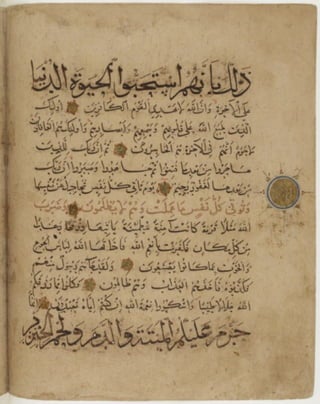 ذلك بأنهم استحبوا الحيوة الدنيا
على الآخرة وأن الله لا يهدي القوم الكافرين أولئك
الذين طبع الله على قلوبهم وسمعهم وأبصارهم وأولئك هم الغافلون
لا جرم أنهم في الآخرة هم الخاسرون ثم إن ربك للذين
هاجروا من بعد ما فتنوا ثم جاهدوا وصبروا إن ربك
من بعدها لغفور رحيم يوم تأتي كل نفس تجادل عن نفسها
وتوفى كل نفس ما عملت وهم لا يظلمون وضرب
الله مثلا قرية كانت آمنة مطمئنة يأتيها رزقها رغدا
من كل مكان فكفرت بأنعم الله فأذاقها الله لباس الجوع
والخوف بما كانوا يصنعون ولقد جاءهم رسول منهم
فكذبوه فأخذهم العذاب وهم ظالمون فكلوا مما رزقكم
الله حلالا طيبا واشكروا نعمة الله إن كنتم إياه تعبدون إنما
حرم عليكم الميتة والدم ولحم الخنزير